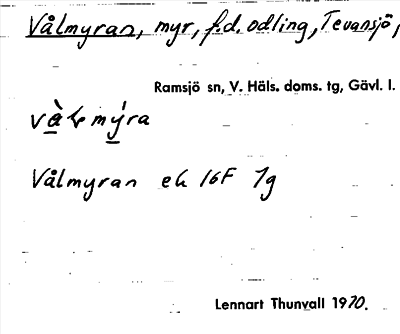 Vålmyran, myr, f.d. odling, Tevansjö,
Ramsjö sn, V. Häls. doms. tg, Gävl. l.
Vålmyran ek 16F 7g
Lennart Thunvall 1970.